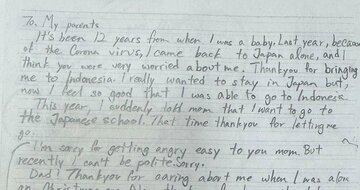 To. My parents
It's been 12 years from when I was a baby. Last year, because
of the Corona virus, I came back to Japan alone, and I
think you were very worried about me. Thank you for bringing
me to Indonesia. I really wanted to stay in Japan but,
now I feel so good that I was able to go to Indonesia.
This year, I suddenly told mom that I want to go to
the Japanese school. That time thank you for letting me
go.
I'm sorry for getting angry easy to you mom. But
recently I can't be polite. Sorry.
Dad! Thank you for caring about me when I was alon